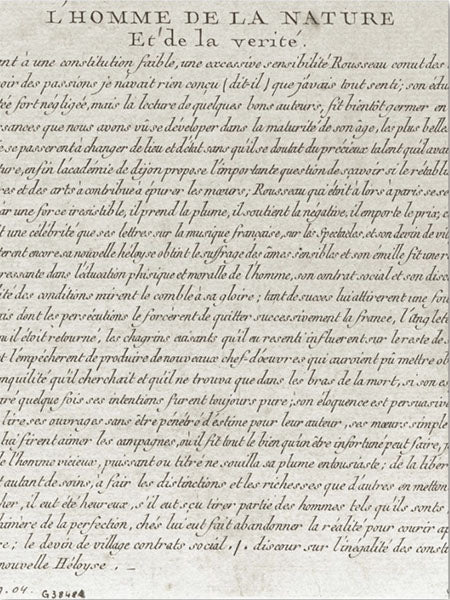 L'HOMME DE LA NATURE
Et de la verité.
ent à une constitution faible, une excessive sensibilité Rousseau conut des
oir des passions je navait rien conçu (dit-il) que j'avais tout senti; son édu
fort negligée, mais la lecture de quelques bons auteurs, fit bientôt germer en
sances que nous avons vû se déveloper dans la maturité de son âge, les plus belle
e se passerent à changer de lieu et d'état sans qu'il se doutat du précieux talent qu'il avai
ure, enfin l'académie de dijon propose l'importante question de sçavoir si le rétabli
res et des arts à contribué à épurer les mœurs; Rousseau qui étoit à lors à paris se se
ar une force iresistible, il prend la plume, il soutient la négative, il emporte le prix; c
it une célébrité que ses lettres sur la musique française, sur les Spectacles, et son devin de vil
terent encore, sa nouvelle héloyse obtint le suffrage des âmes sensibles et son émille fit une r
ressante dans l'éducation phisique et moralle de l'homme, son contrat social et son disc
lité des conditions mirent le comble à sa gloire; tant de succes lui attirerent une fou
is dont les persécutions le forcèrent de quitter successivement la france, l'anglet
u il étoit retourné, les chagrins cuisants qu'il en resenti influerent sur le reste de s
t l'empêchèrent de produire de nouveaux chef-d'œuvres qui auroient pû mettre ob
nquilité qu'il cherchait et qu'il ne trouva que dans les bras de la mort, si son es
are quelque fois ses intentions furent toujours pure; son éloquence est persuasiv
lire ses ouvrages sans être pénétré d'estime pour leur auteur, ses mœurs simple
lui firent aimer les campagnes, ou il fit tout le bien qu'un être infortuné peut faire, j
e l'homme vicieux, puissant ou titré ne souilla sa plume entousiaste; de la liber
t autant de soins, à fair les distinctions et les richesses que d'autres en metton
her, il eut été heureux, s'il eut sçu tirer partie des hommes tels qu'ils sonts
imère de la perfection, chés lui eut fait abandonner la réalité pour courir ap
re; le devin de village contrats social, discour sur l'inégalité des conste
nouvelle Héloyse.
04.
G38484